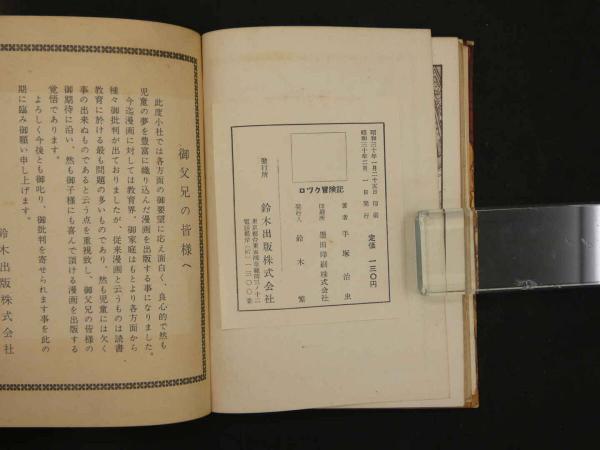 御父兄の皆様へ
此度小社では各方面の御要望に応え面白く、良心的で然も
児童の夢を豊富に織り込んだ漫画を出版する事になりました。
今迄漫画に対しては教育界、御家庭はもとより各方面から
種々御批判が出ておりましたが、従来漫画と云うものは読書
教育に於ける最も問題の多いものであり、然も児童には欠く
事の出来ぬものであると云う点を重視致し、御父兄の皆様の
御期待に沿い、然も御子様にも喜んで頂ける漫画を出版する
覚悟であります。
よろしく今後とも御叱り、御批判を寄せられます事を此の
期に臨み御願い申し上げます。
鈴木出版株式会社
昭和三十年一月二十五日 印刷
昭和三十年二月一日 発行
定価 一三〇円
ロック冒険記
著者 手塚治虫
印刷所 墨田印刷株式会社
発行人 鈴木繁
発行所 鈴木出版株式会社